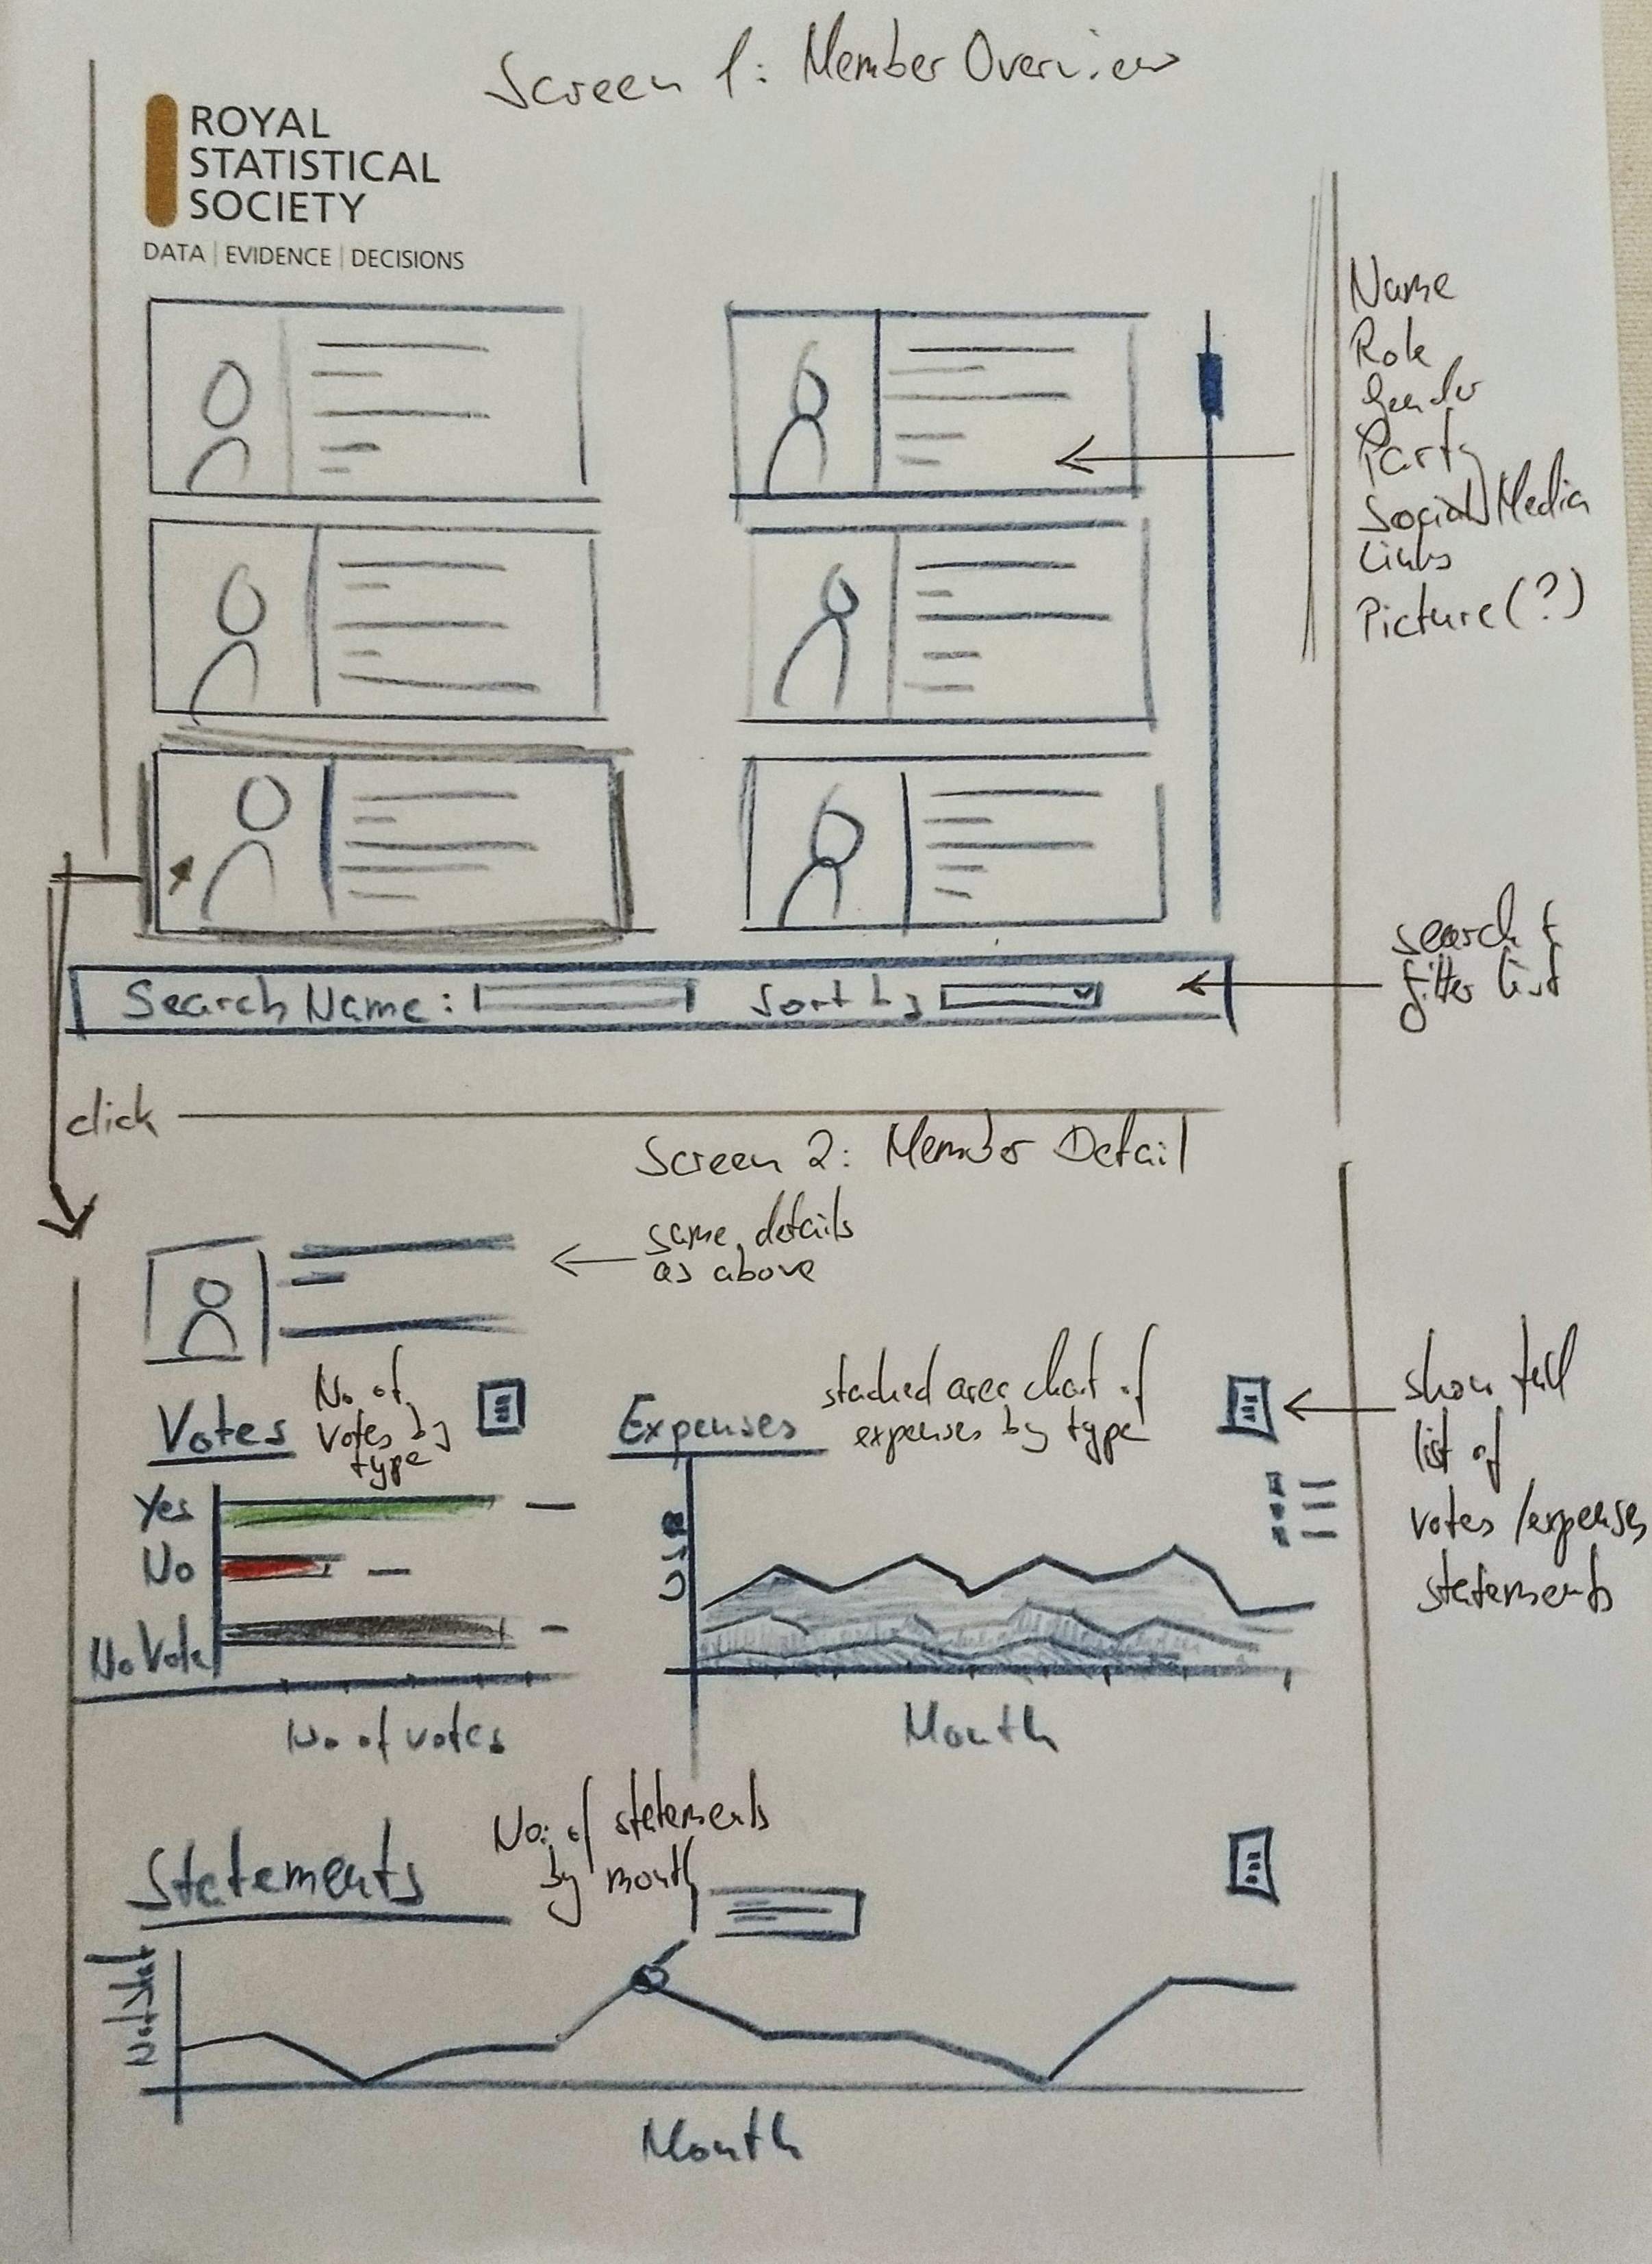 Screen 1: Member Overview
ROYAL
STATISTICAL
SOCIETY
DATA | EVIDENCE | DECISIONS
Name
Role
Gender
Party
Social Media
Links
Picture (?)
search &
filter list
Search Name:
Sort by
click
Screen 2: Member Detail
same details
as above
Votes
No of
votes by
type
Expenses
stacked area chart of
expenses by type
show full
list of
votes / expenses
statements
Yes
No
No Vote
No. of votes
Month
Statements
No. of statements
by month
Month